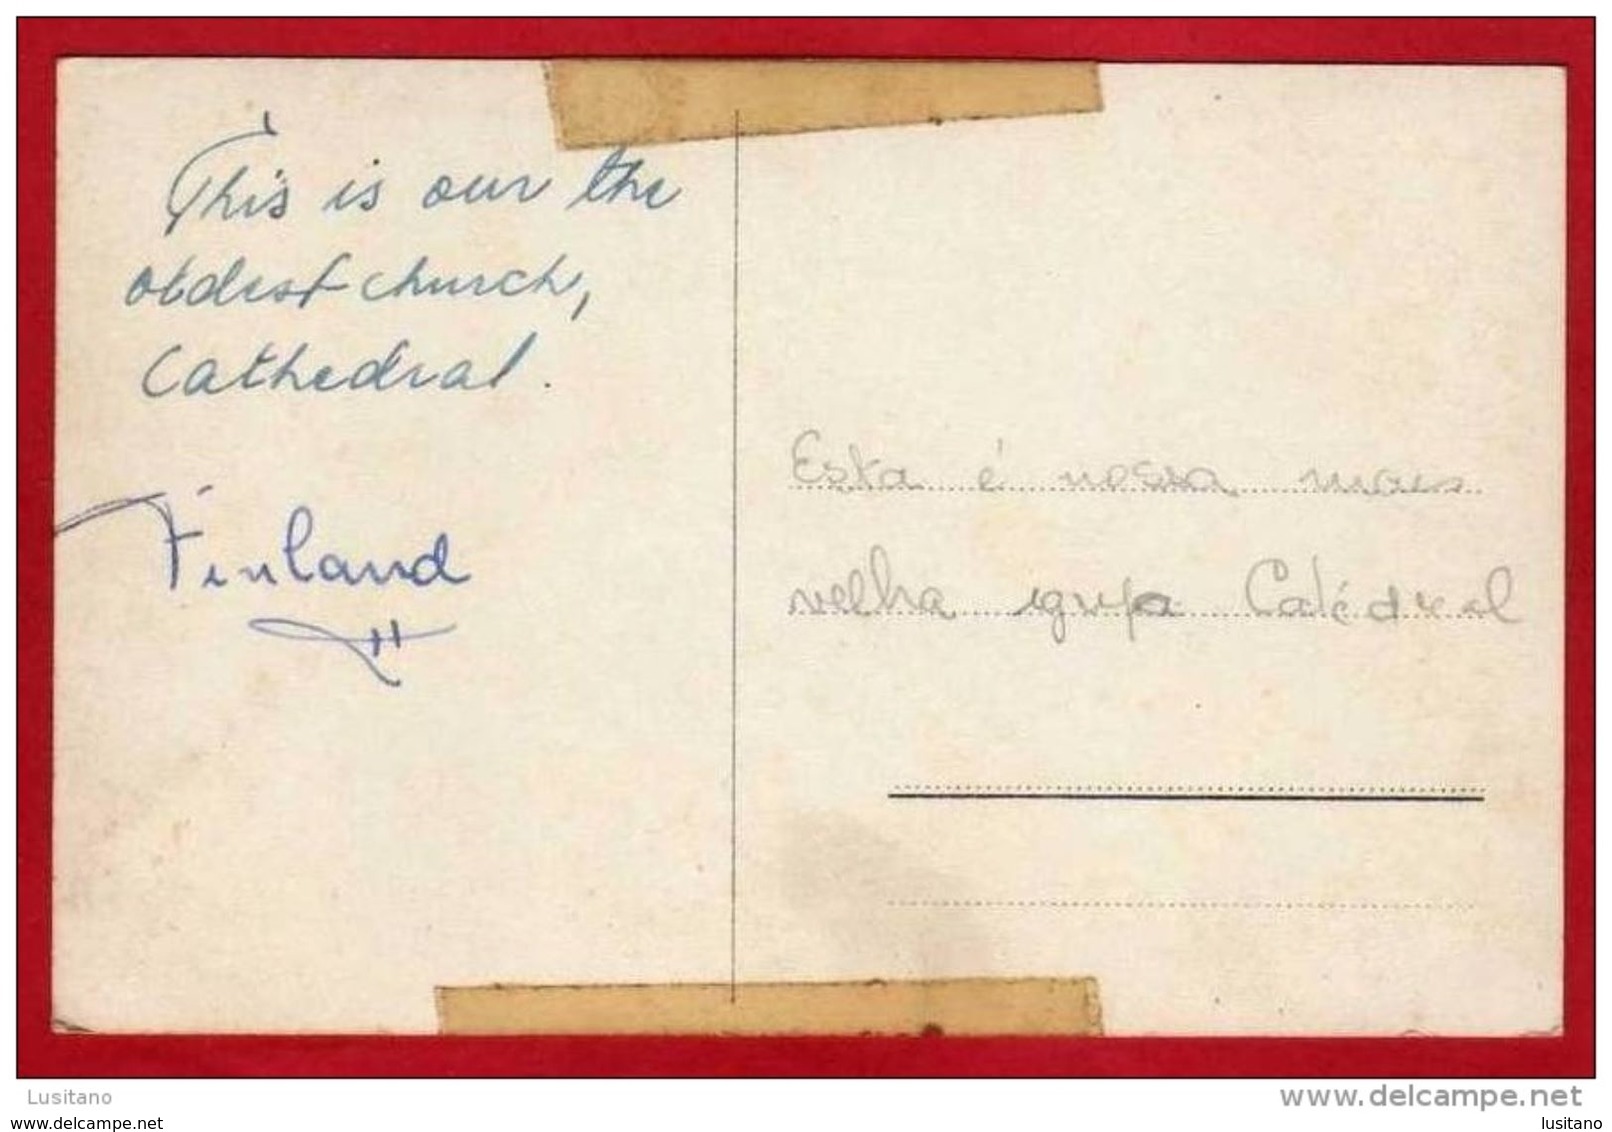 This is our the
oldest church,
Cathedral.
Finland
Esta é nossa mais
velha igrega Catédral
Lusitano
www.delcampe.net
www.delcampe.net
lusitano